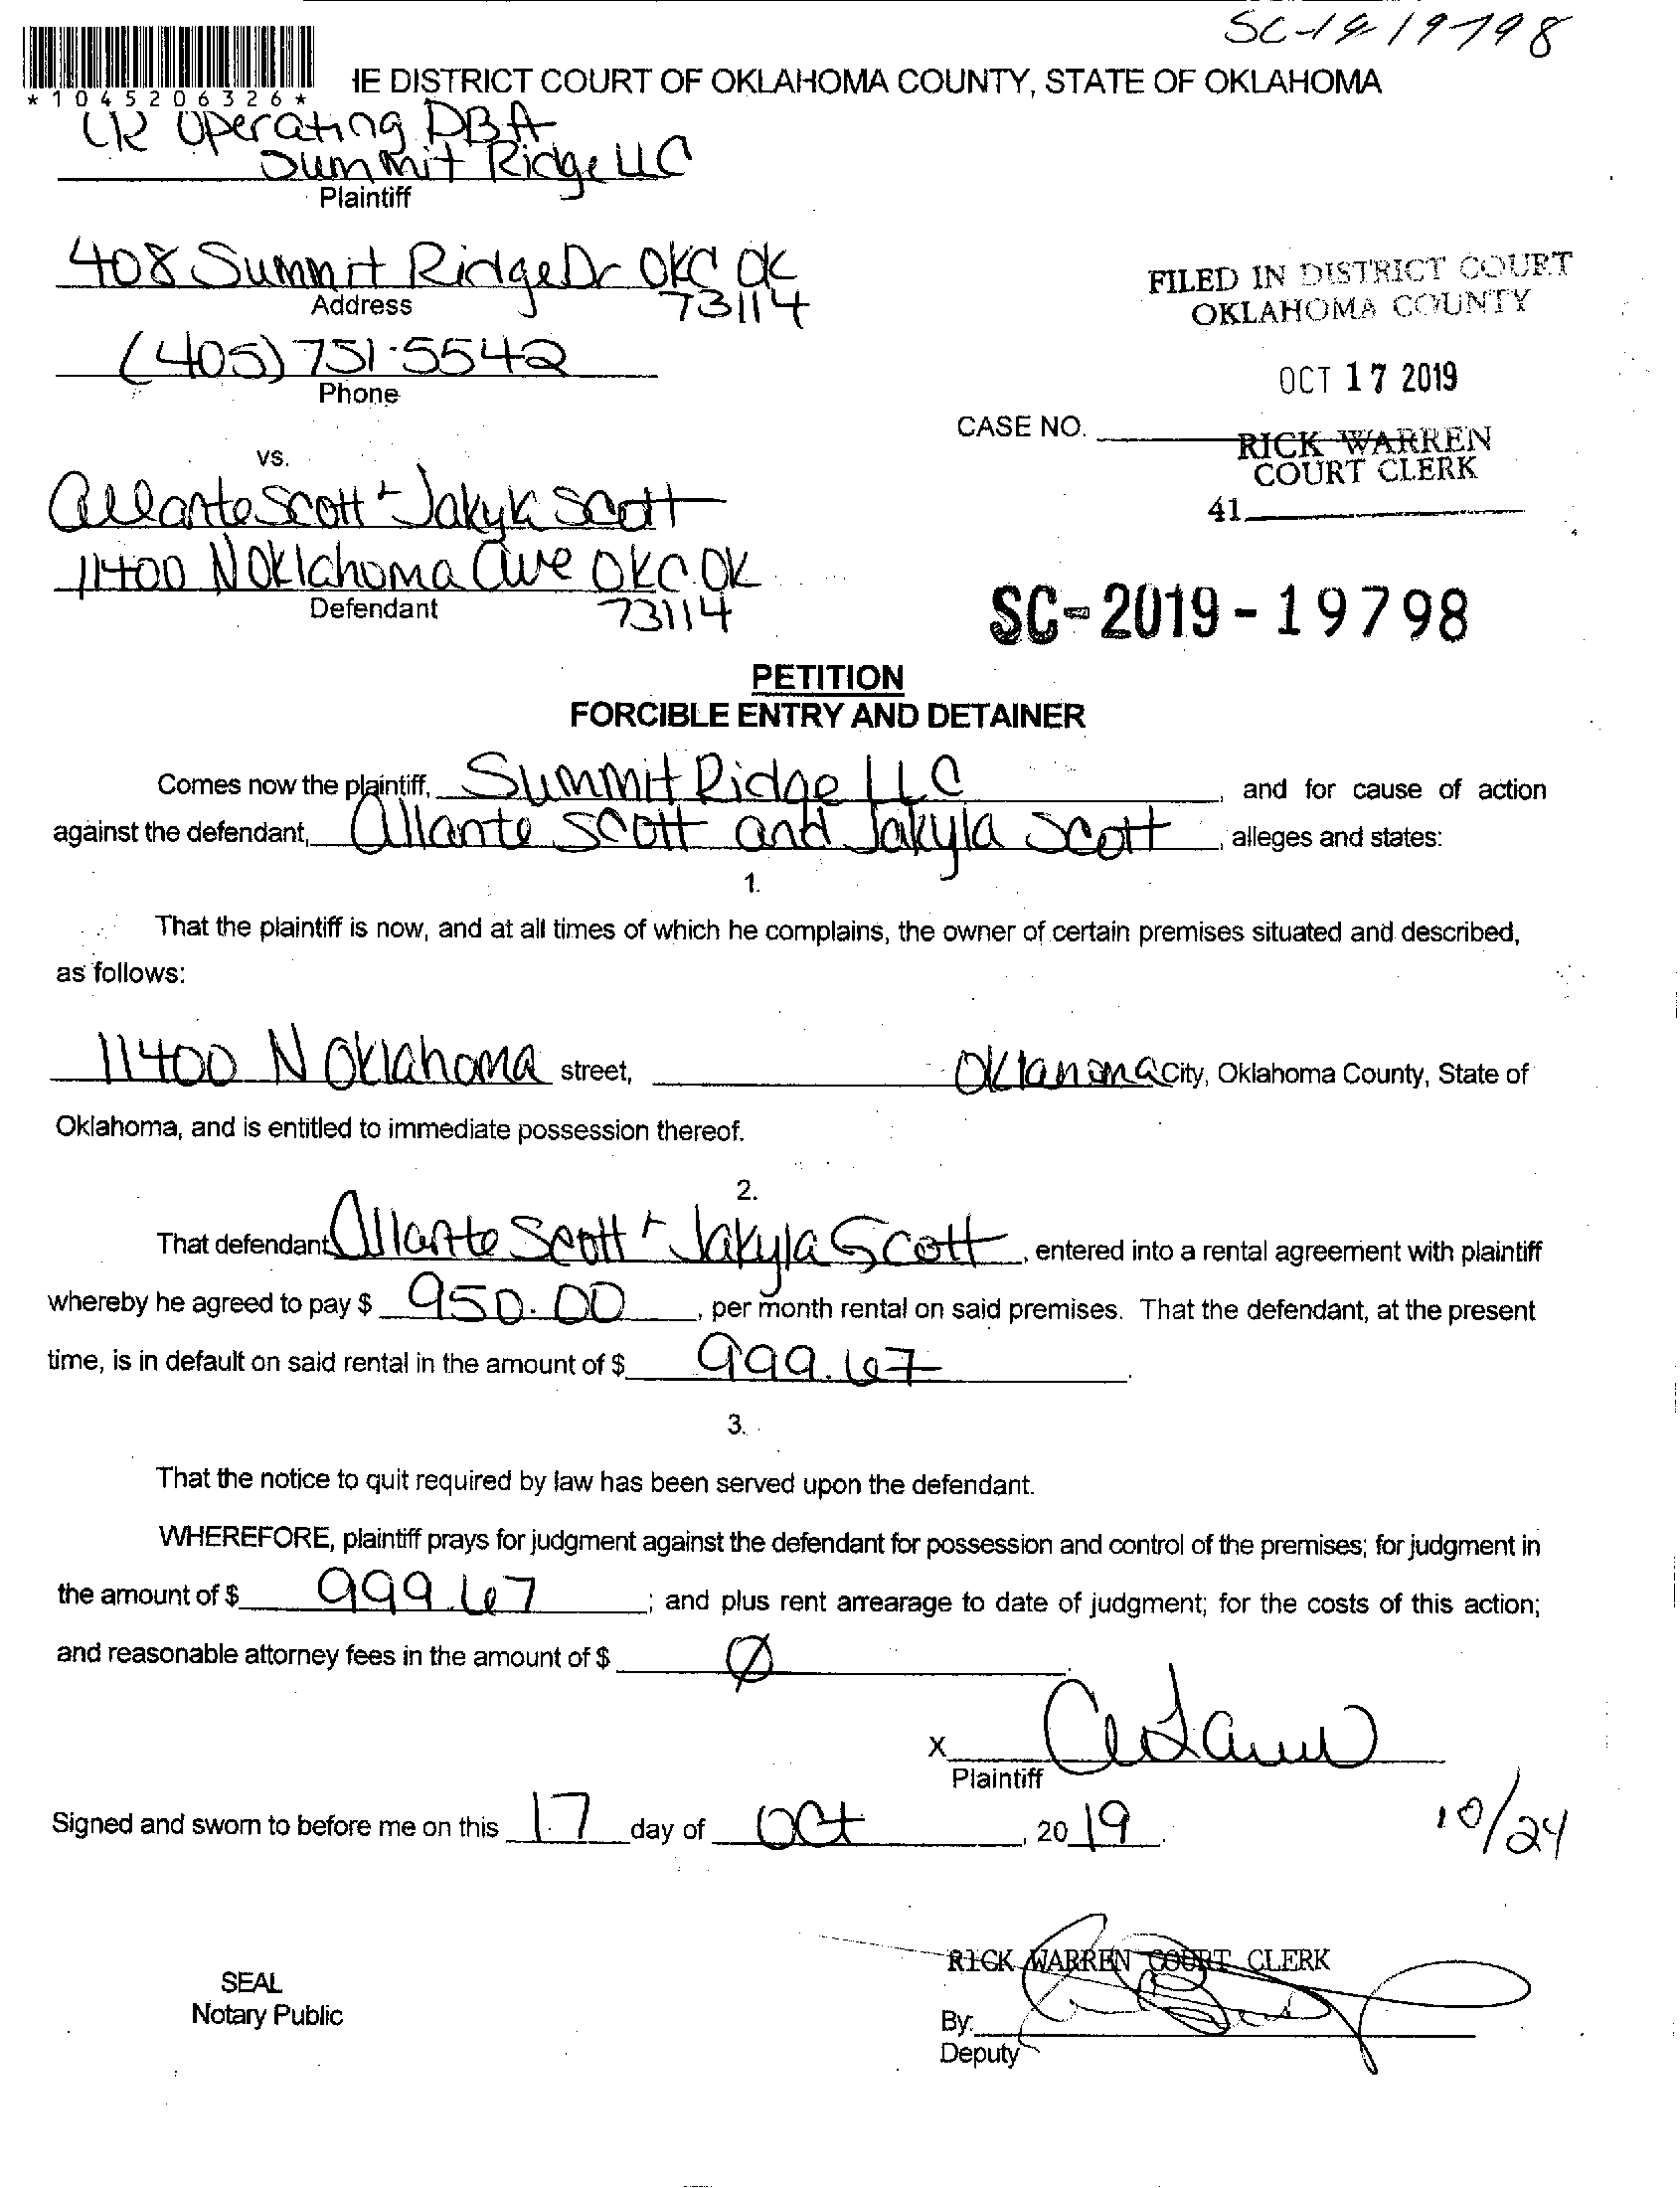 SC-19 19798
*1045206326*
IE DISTRICT COURT OF OKLAHOMA COUNTY, STATE OF OKLAHOMA
LR Operating DBA
Summit Ridge LLC
Plaintiff
408 Summit Ridge Dr OKC OK
Address
73114
(405) 751-5542
Phone
FILED IN DISTRICT COURT
OKLAHOMA COUNTY
OCT 17 2019
CASE NO.
RICK WARREN
COURT CLERK
41
vs.
Allante Scott + Jakyla Scott
11400 N Oklahoma Ave OKC OK
Defendant
73114
SC-2019-19798
PETITION
FORCIBLE ENTRY AND DETAINER
Comes now the plaintiff, Summit Ridge LLC and for cause of action
against the defendant, Allante Scott and Jakyla Scott, alleges and states:
1.
That the plaintiff is now, and at all times of which he complains, the owner of certain premises situated and described,
as follows:
11400 N Oklahoma street, Oklahoma City, Oklahoma County, State of
Oklahoma, and is entitled to immediate possession thereof.
2.
That defendant Allante Scott + Jakyla Scott, entered into a rental agreement with plaintiff
whereby he agreed to pay $ 950.00, per month rental on said premises. That the defendant, at the present
time, is in default on said rental in the amount of $ 999.67.
3.
That the notice to quit required by law has been served upon the defendant.
WHEREFORE, plaintiff prays for judgment against the defendant for possession and control of the premises; for judgment in
the amount of $ 999.67; and plus rent arrearage to date of judgment; for the costs of this action;
and reasonable attorney fees in the amount of $ Ø.
X
Plaintiff
Signed and sworn to before me on this 17 day of Oct, 2019.
10/24
RICK WARREN COURT CLERK
SEAL
Notary Public
By:
Deputy